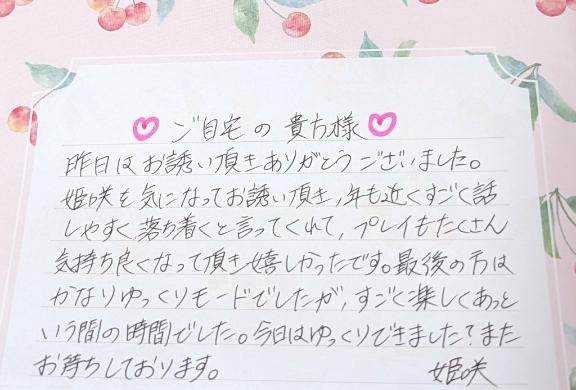 ♡ ご自宅の貴方様♡
昨日はお誘い頂きありがとうございました。
姫咲を気になってお誘い頂き、年も近くすごく話
しやすく落ち着くと言ってくれて、プレイもたくさん
気持ち良くなって頂き嬉しかったです。最後の方は
かなりゆっくりモードでしたが、すごく楽しくあっと
いう間の時間でした。今日はゆっくりできました？また
お待ちしております。 姫咲